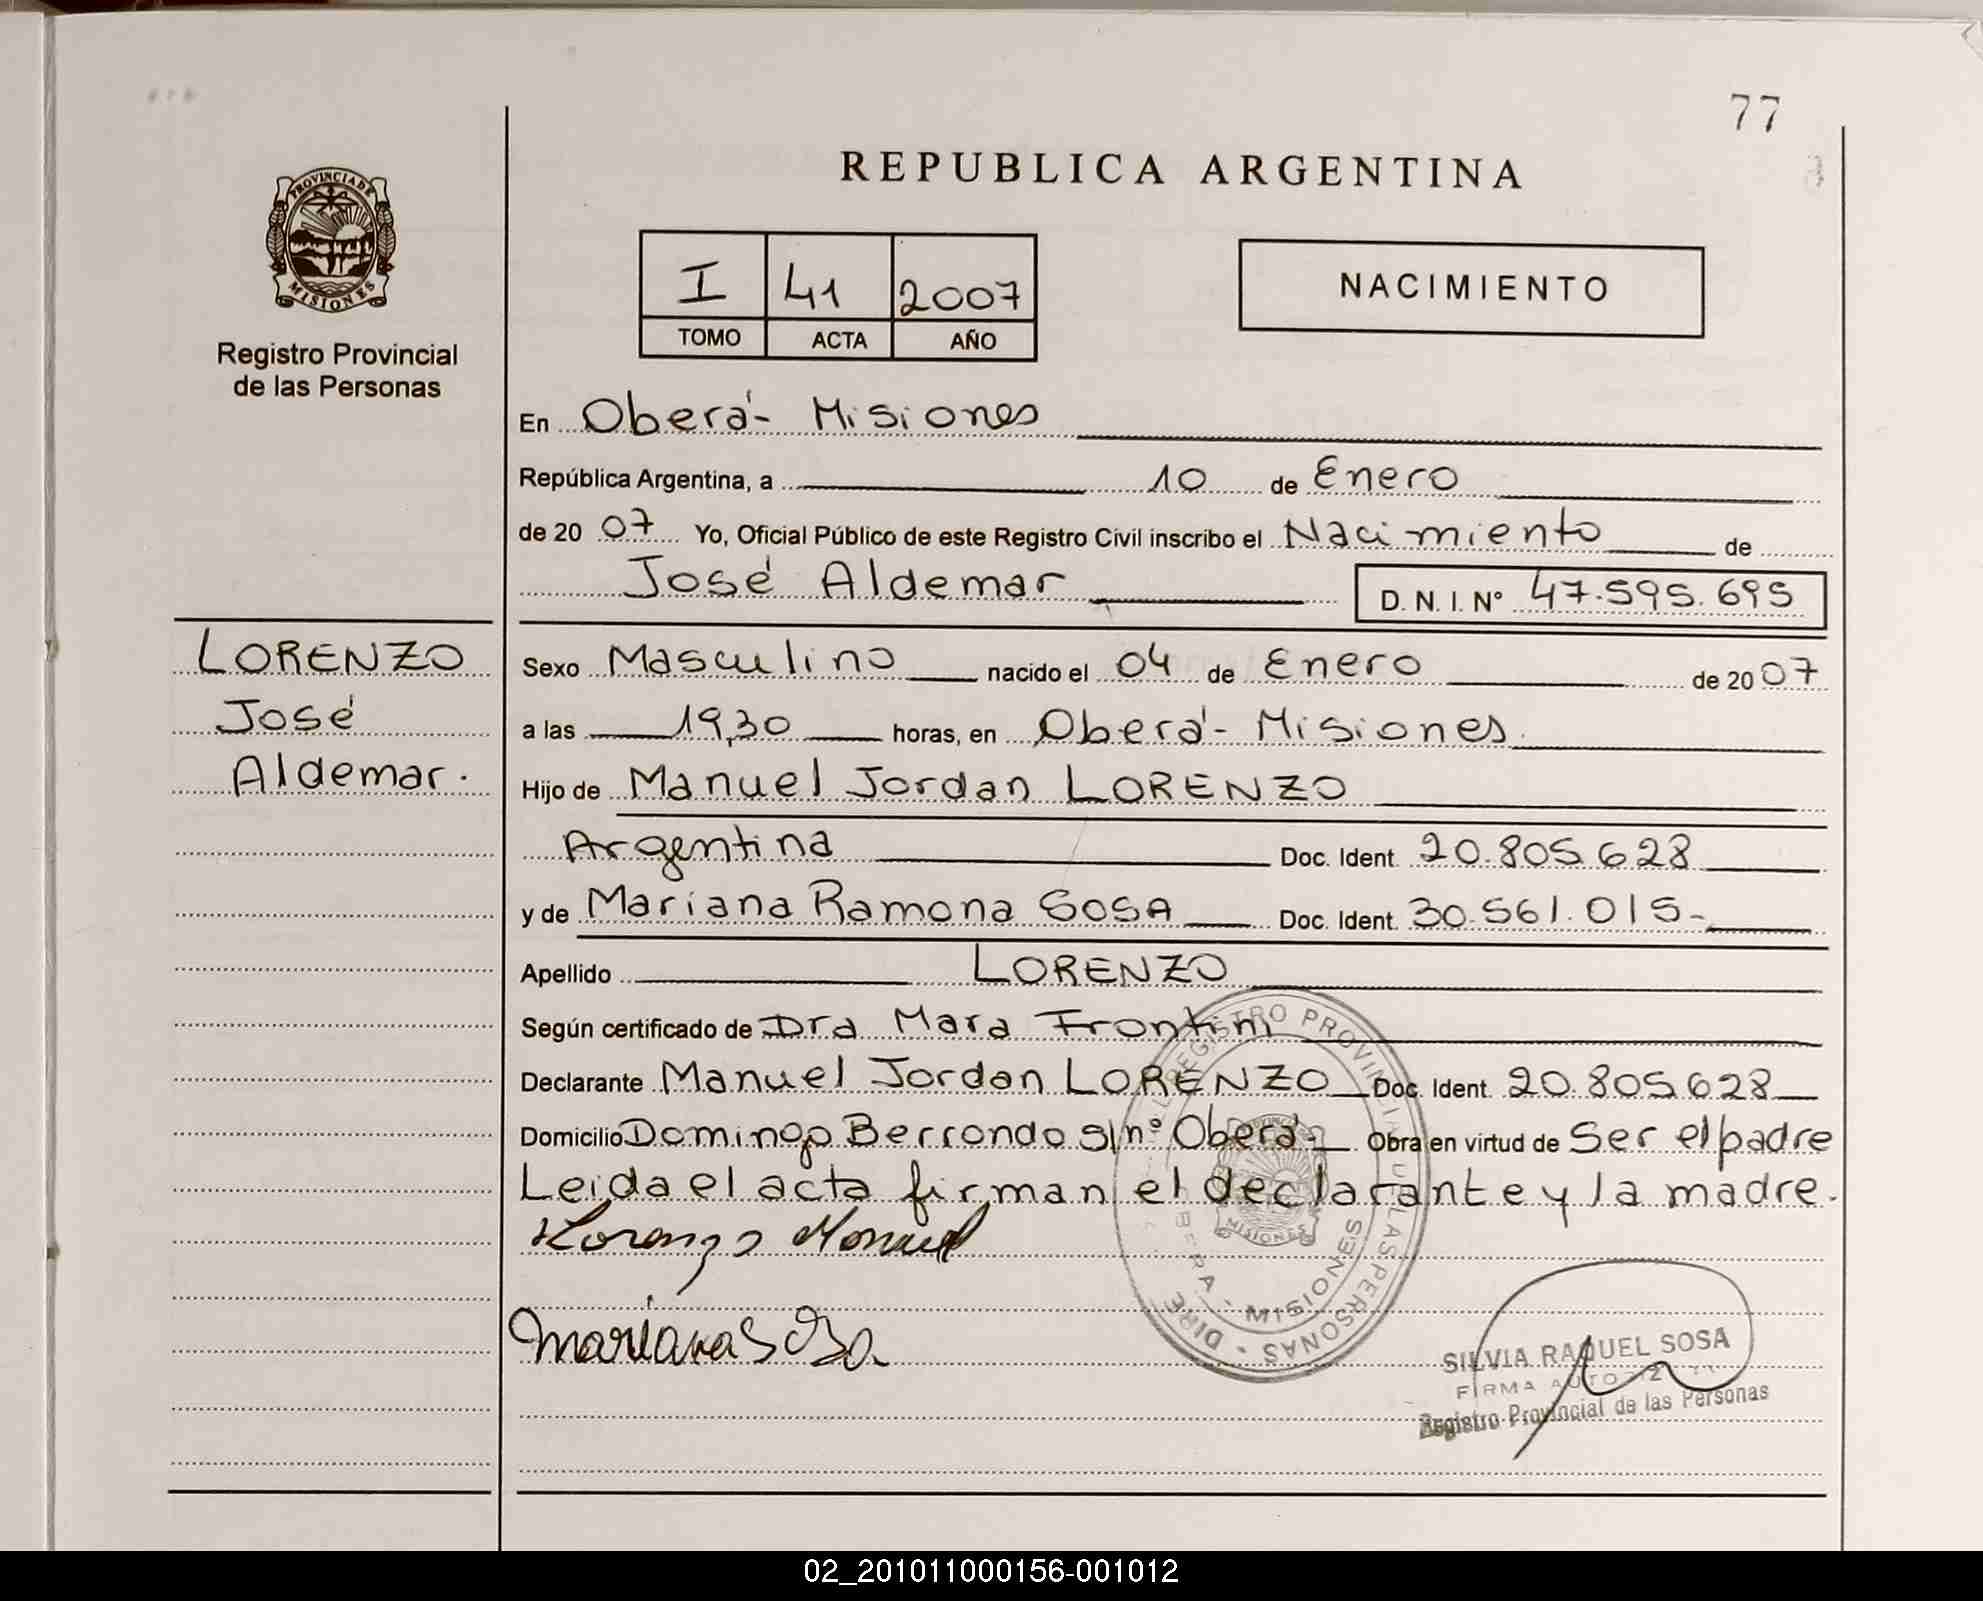 77
REPUBLICA ARGENTINA
PROVINCIA DE
MISIONES
Registro Provincial
de las Personas
I 41 2007
TOMO ACTA AÑO
NACIMIENTO
En Oberá - Misiones
República Argentina, a 10 de Enero
de 2007 Yo, Oficial Público de este Registro Civil inscribo el Nacimiento de
José Aldemar D. N. I. N° 47.595.695
LORENZO
José
Aldemar.
Sexo Masculino nacido el 04 de Enero de 2007
a las 19,30 horas, en Oberá - Misiones.
Hijo de Manuel Jordan LORENZO
Argentina Doc. Ident. 20.805.628
y de Mariana Ramona SOSA Doc. Ident. 30.561.015-
Apellido LORENZO
Según certificado de Dra Mara Frontini
Declarante Manuel Jordan LORENZO Doc. Ident. 20.805.628
Domicilio Domingo Berrondo s/n° Oberá- Obra en virtud de Ser el padre
Leida el acta firman el declarante y la madre.
Lorenzo Manuel
Mariana Sosa
REGISTRO PROVINCIAL DE LAS PERSONAS
MISIONES
SILVIA RAQUEL SOSA
FIRMA AUTORIZADA
Registro Provincial de las Personas
02_201011000156-001012